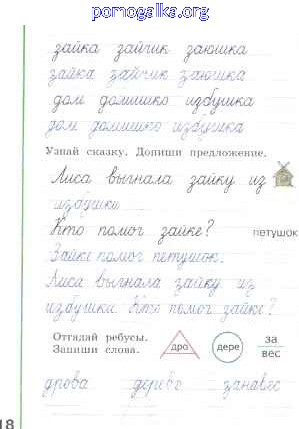 pomogalka.org
зайка зайчик заюшка
зайка зайчик заюшка
дом домишко избушка
дом домишко избушка
Узнай сказку. Допиши предложение.
Лиса выгнала зайку из
избушки.
Кто помог зайке?
петушок
Зайке помог петушок.
Лиса выгнала зайку из
избушки. Кто помог зайке?
Отгадай ребусы.
Запиши слова.
дро
дере
за
вес
дрова дерево занавес
18